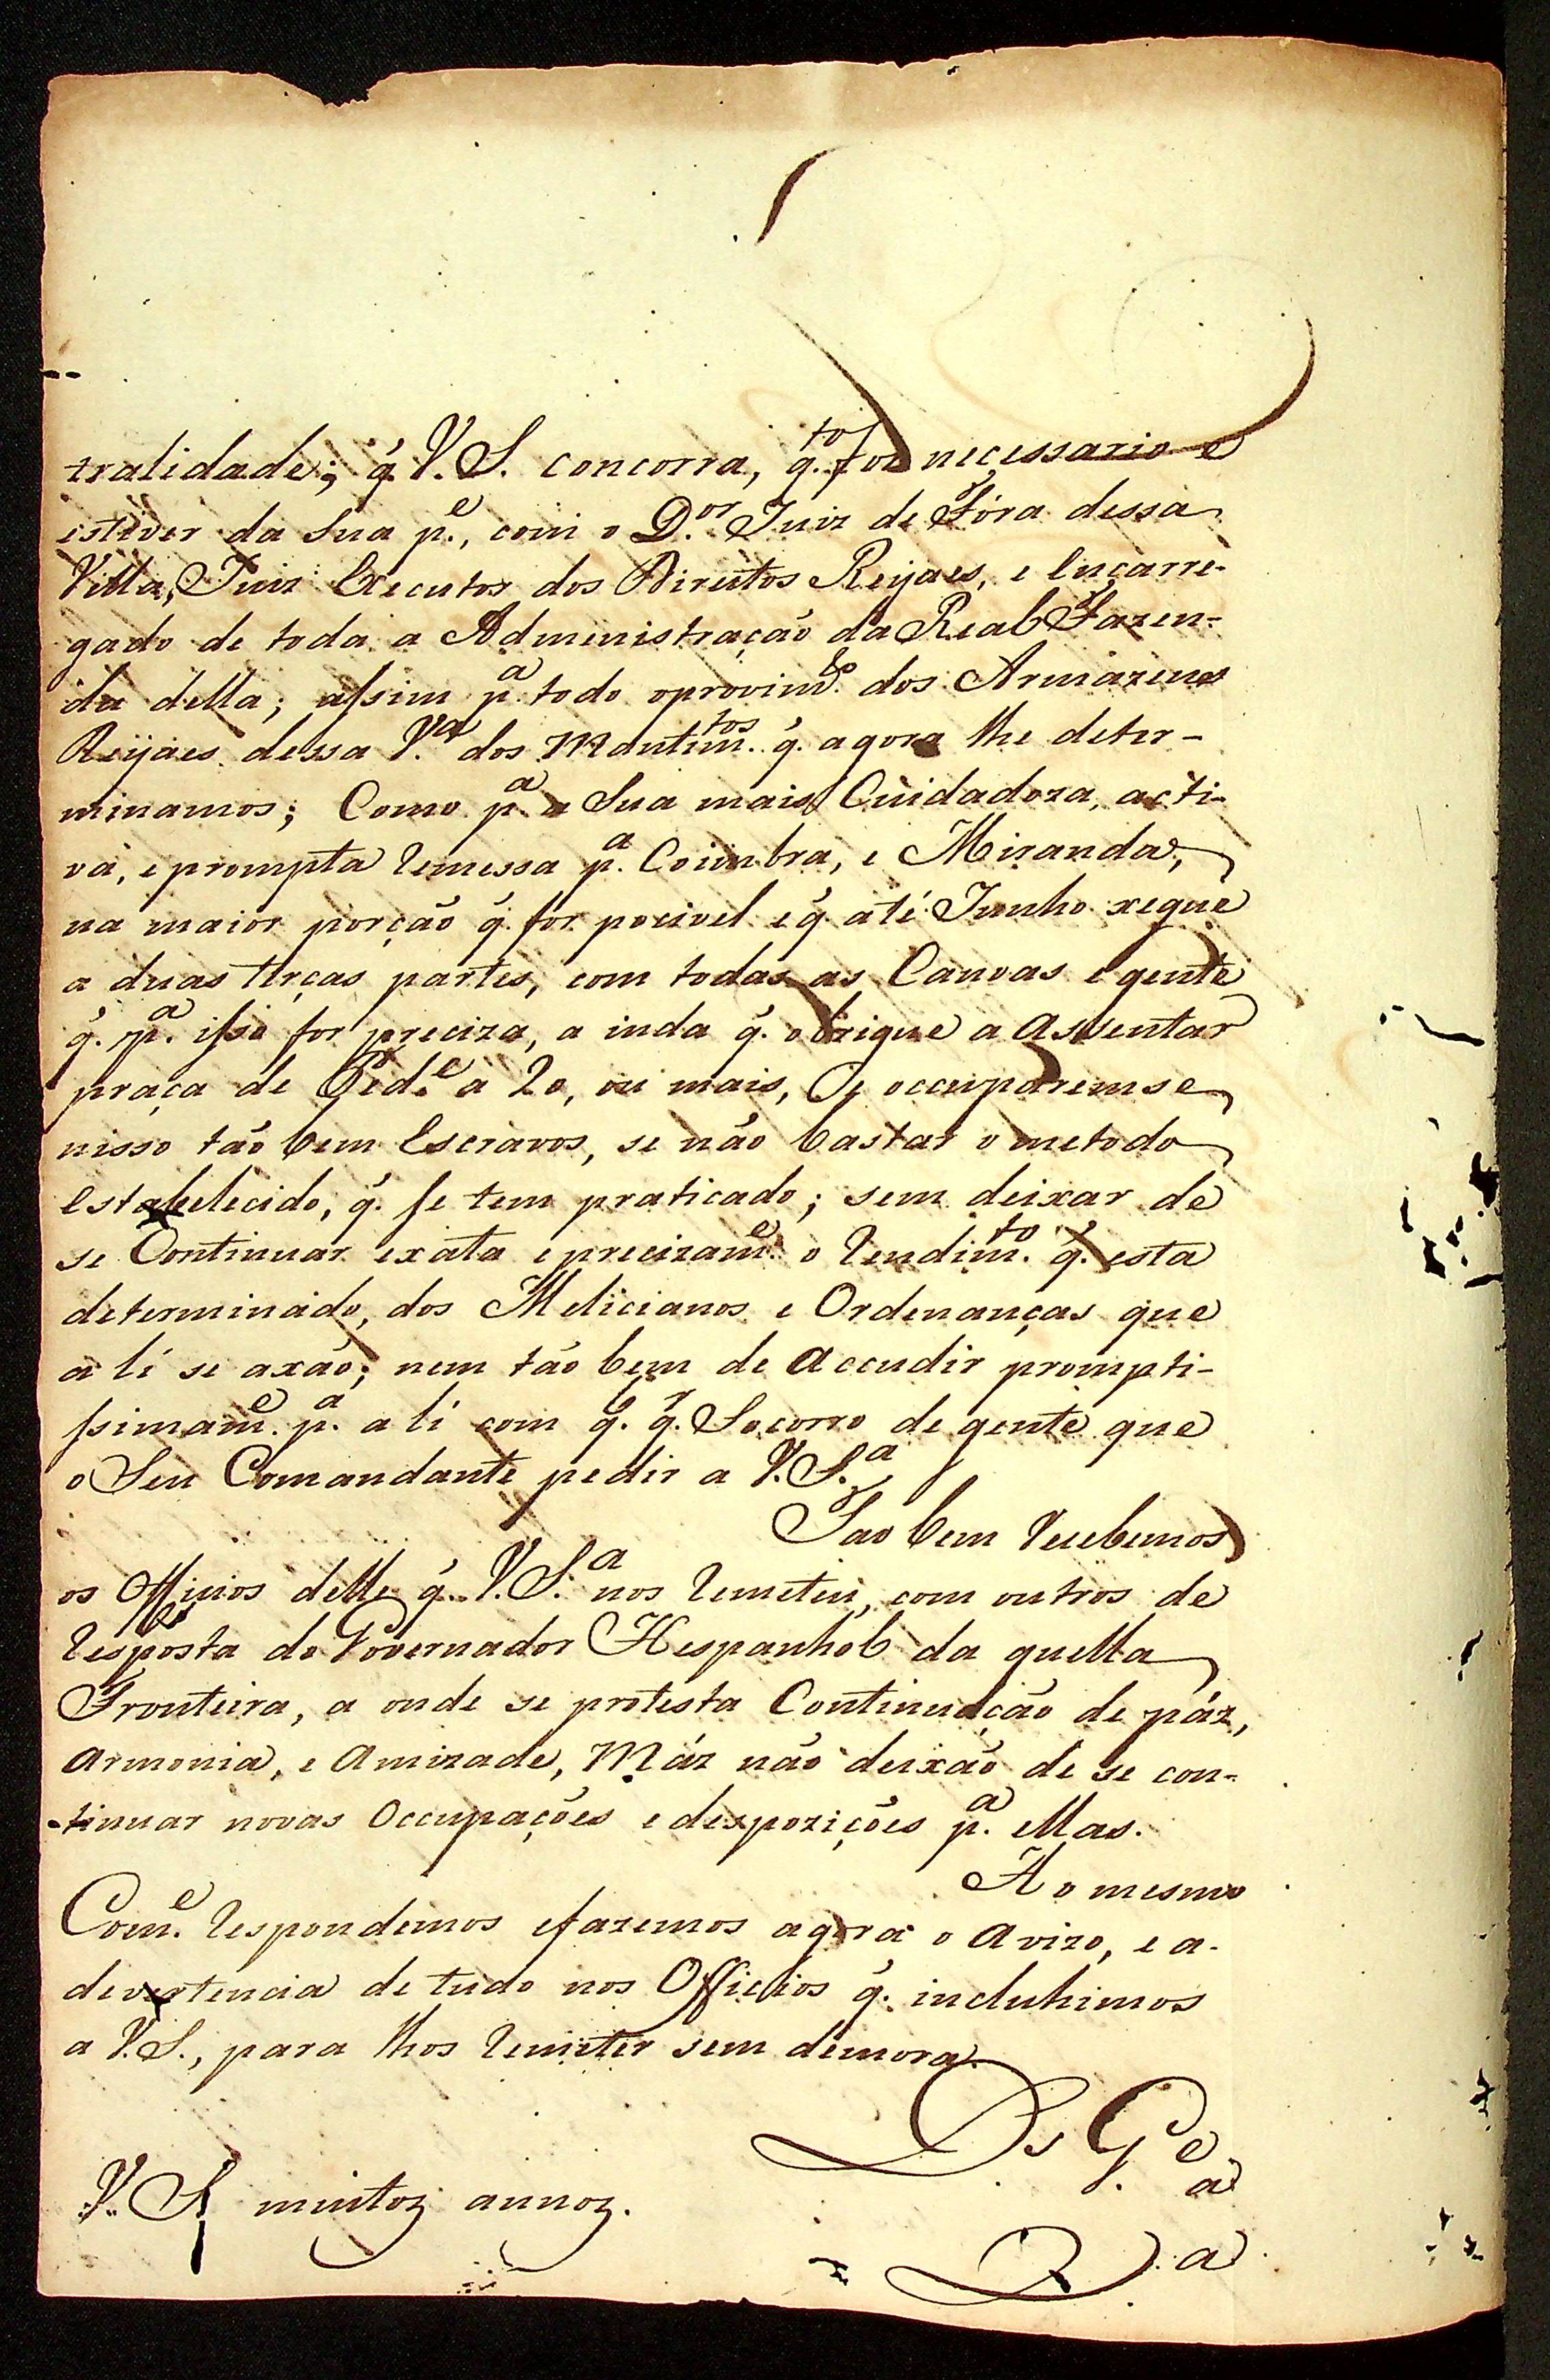 tralidade; q̃. V. S. concorra, q.to for necessario e
estiver da sua p.e, com o D.or Juiz de Fóra dessa
Villa, Juiz Executor dos Direitos Reyaes, e Encarre-
gado de toda a Administração da Real Fazen-
da della; assim p.a todo oprovim.to dos Armazens
Reyaes dessa V.a dos Mantim.tos q̃. agora lhe deter-
minamos; Como p.a a Sua mais Cuidadoza, acti-
va, e prompta remessa p.a Coimbra, e Miranda,
na maior porção q̃. for pocivel e q̃. até Junho xegue
a duas terças partes, com todas as Canoas e gente
q̃. p.a isso for preciza, a inda q̃. obrigue a Assentar
praça de Ped.e a 20, ou mais, e occuparemse
nisso tão bem Escravos, se não bastar o metodo
Estabelecido, q̃. se tem praticado; sem deixar de
se Continuar exata e precizam.e o rendim.to q̃. esta
determinado, dos Melicianos e Ordenanças que
a li se axão; nem tão bem de Accudir prompti-
ssimam.e p.a a li com q̃. q.r Socorro de gente que
o Seu Comandante pedir a V. S.a
Tao bem recebemos
os Officios delle q̃. V. S.a nos remeteu, com outros de
resposta do Governador Hespanhol da quella
Fronteira, a onde se protesta Continuação de páz,
Armonia, e Amizade, Máz não deixão de se con-
tinuar novas Occupações e dispozições p.a ellas.
Ao mesmo
Com.e respondemos efazemos agora o Avizo, e a-
devertencia de tudo nos Officios q̃. incluhimos
a V. S., para lhos remeter sem demora.
Ds G.e a
V. S. muitoz annoz.